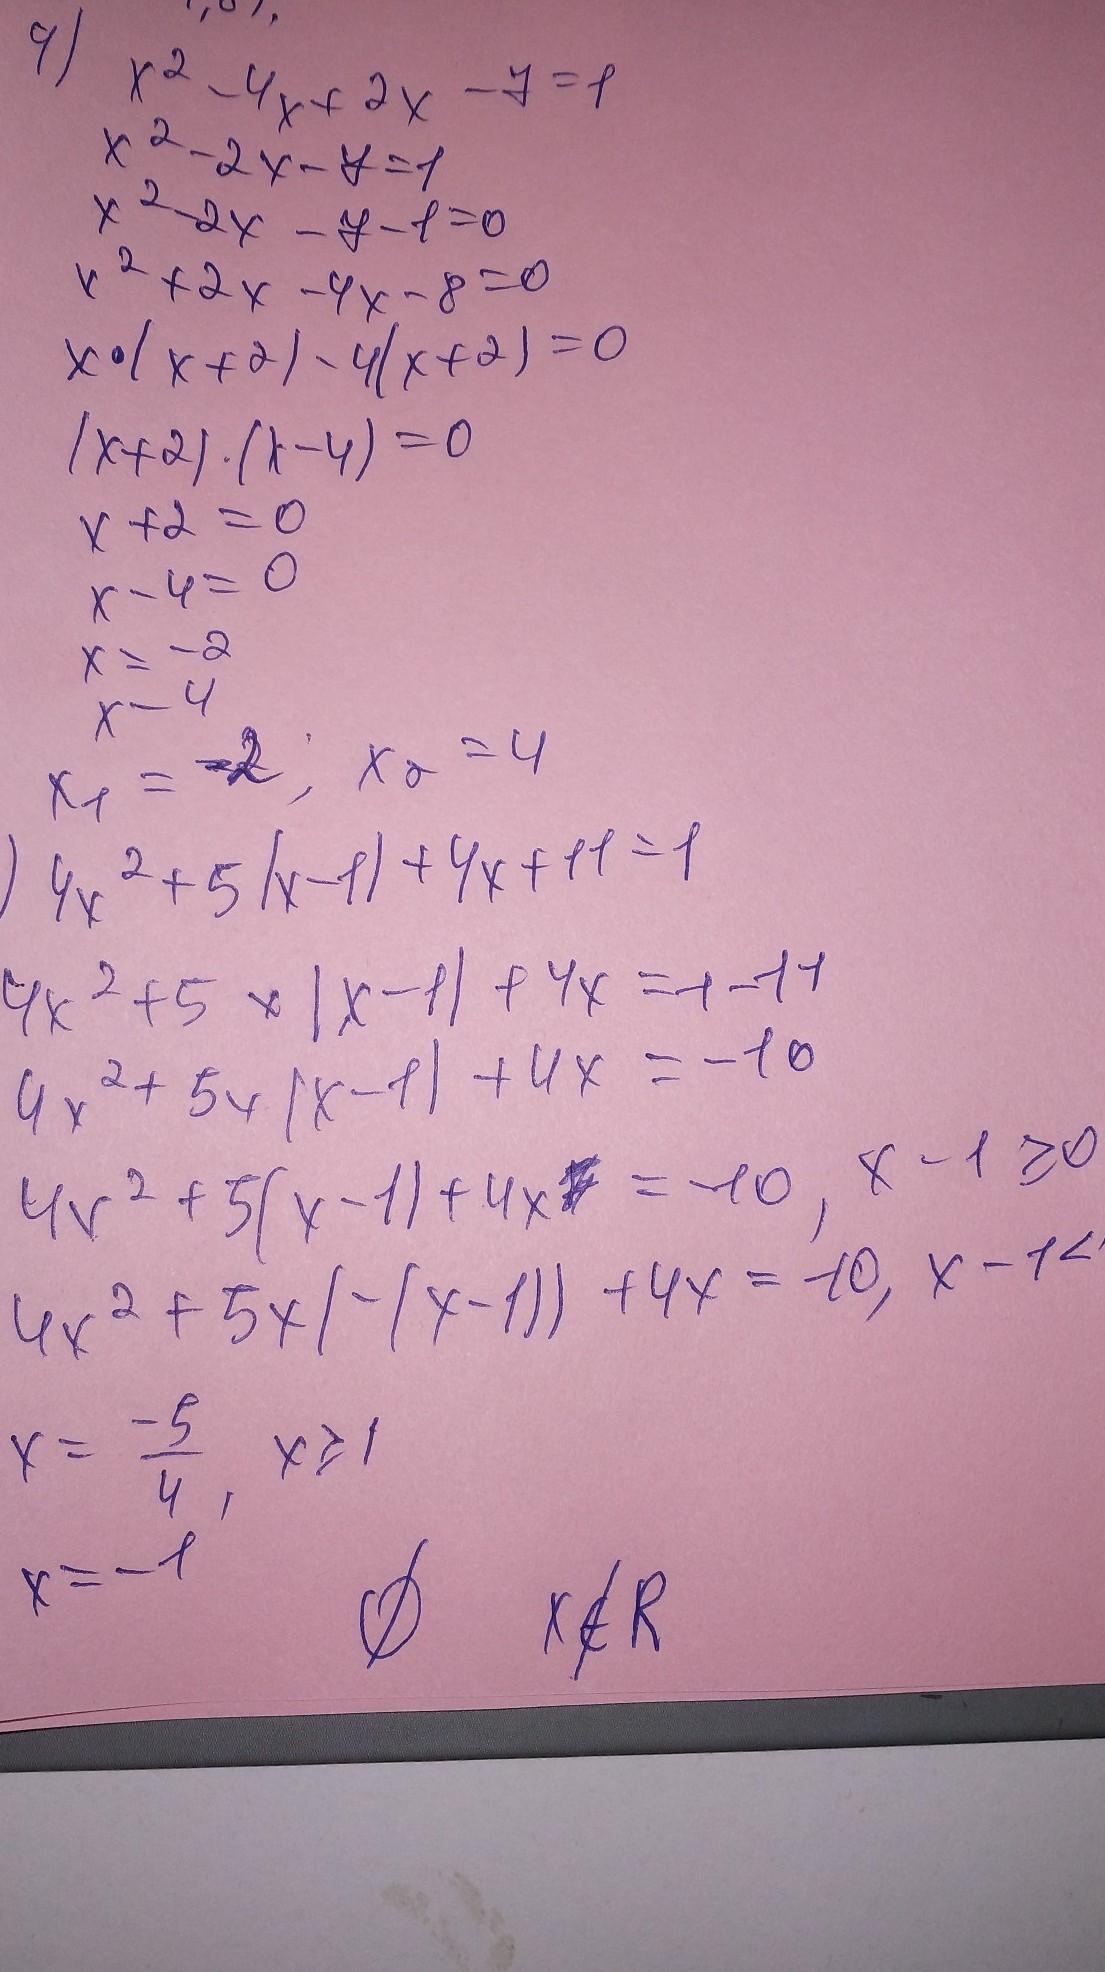 9)
x² - 4x + 2x - 7 = 1
x² - 2x - 7 = 1
x² - 2x - 7 - 1 = 0
x² + 2x - 4x - 8 = 0
x•(x+2) - 4(x+2) = 0
(x+2)·(x-4) = 0
x + 2 = 0
x - 4 = 0
x = -2
x - 4
x₁ = -2; x₂ = 4
) 4x² + 5|x-1| + 4x + 11 = 1
4x² + 5 x |x-1| + 4x = 1-11
4x² + 5x |x-1| + 4x = -10
4x² + 5(x-1) + 4x = -10, x - 1 ≥ 0
4x² + 5x(-(x-1)) + 4x = -10, x - 1 <
x = -5/4, x ≥ 1
x = -1
∅ x∉R